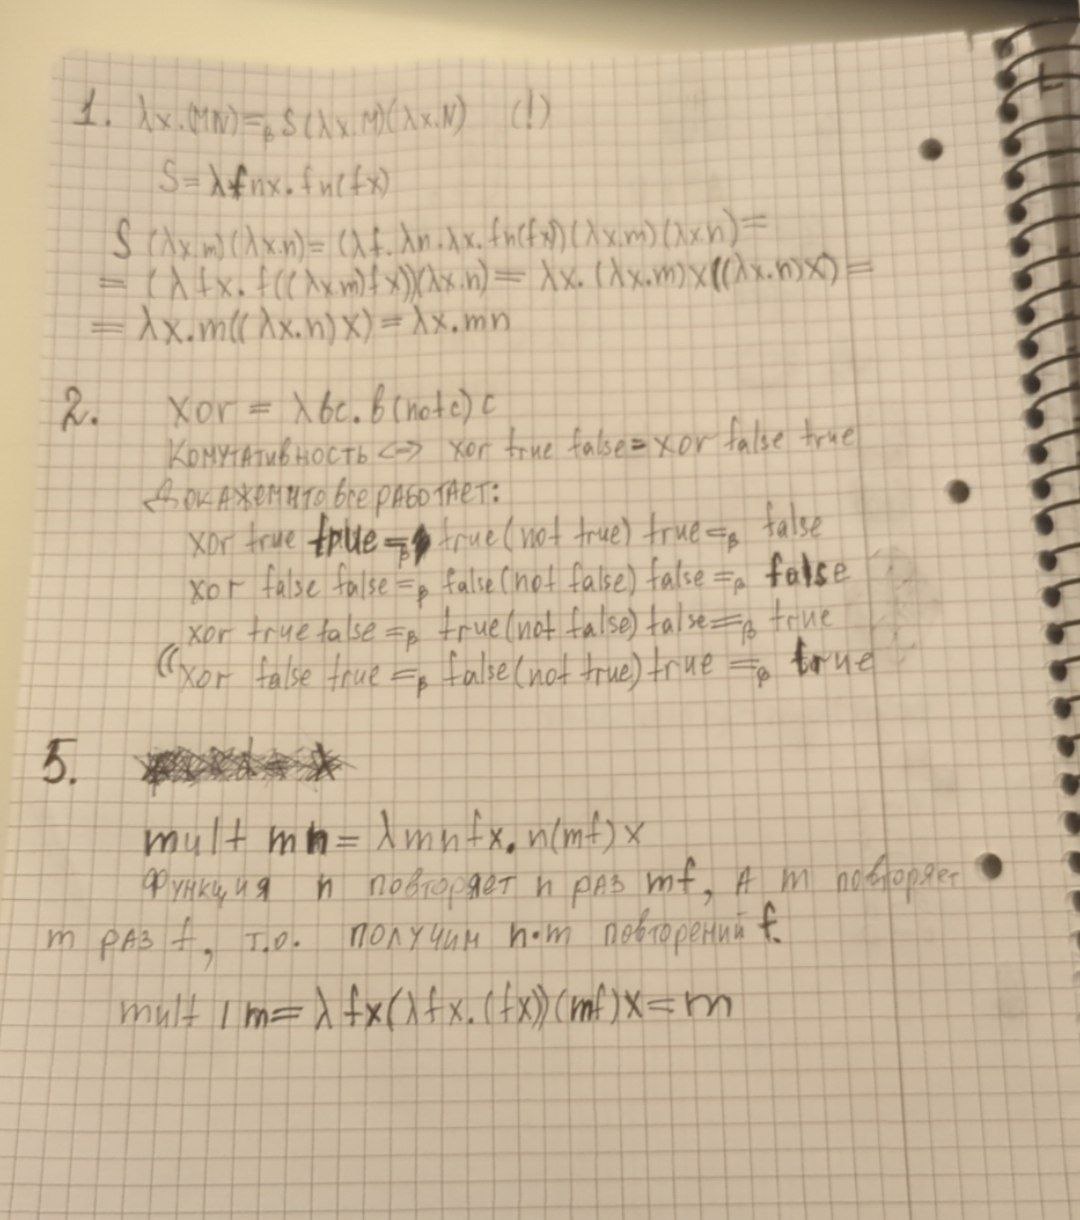 1. λx.(MN)=β S(λx.M)(λx.N) (!)
S=λfnx.fn(fx)
S (λx.m)(λx.n)=(λf.λn.λx.fn(fx))(λx.m)(λx.n)=
= (λfx.f((λxm)fx))(λx.n)= λx.(λx.m)x((λx.n)x)=
= λx.m((λx.n)x)=λx.mn
2. xor = λbc.b(notc)c
Комутативность <=> xor true false=xor false true
Докажем что все работает:
xor true true =β true(not true) true =β false
xor false false =β false(not false) false =β false
xor true false =β true(not false) false =β true
((xor false true =β false(not true) true =β true
5.
mult mn = λmnfx.n(mf)x
Функция n повторяет n раз mf, а m повторяет
m раз f, т.о. получим n·m повторений f.
mult 1 m= λfx(λfx.(fx))(mf)x=m